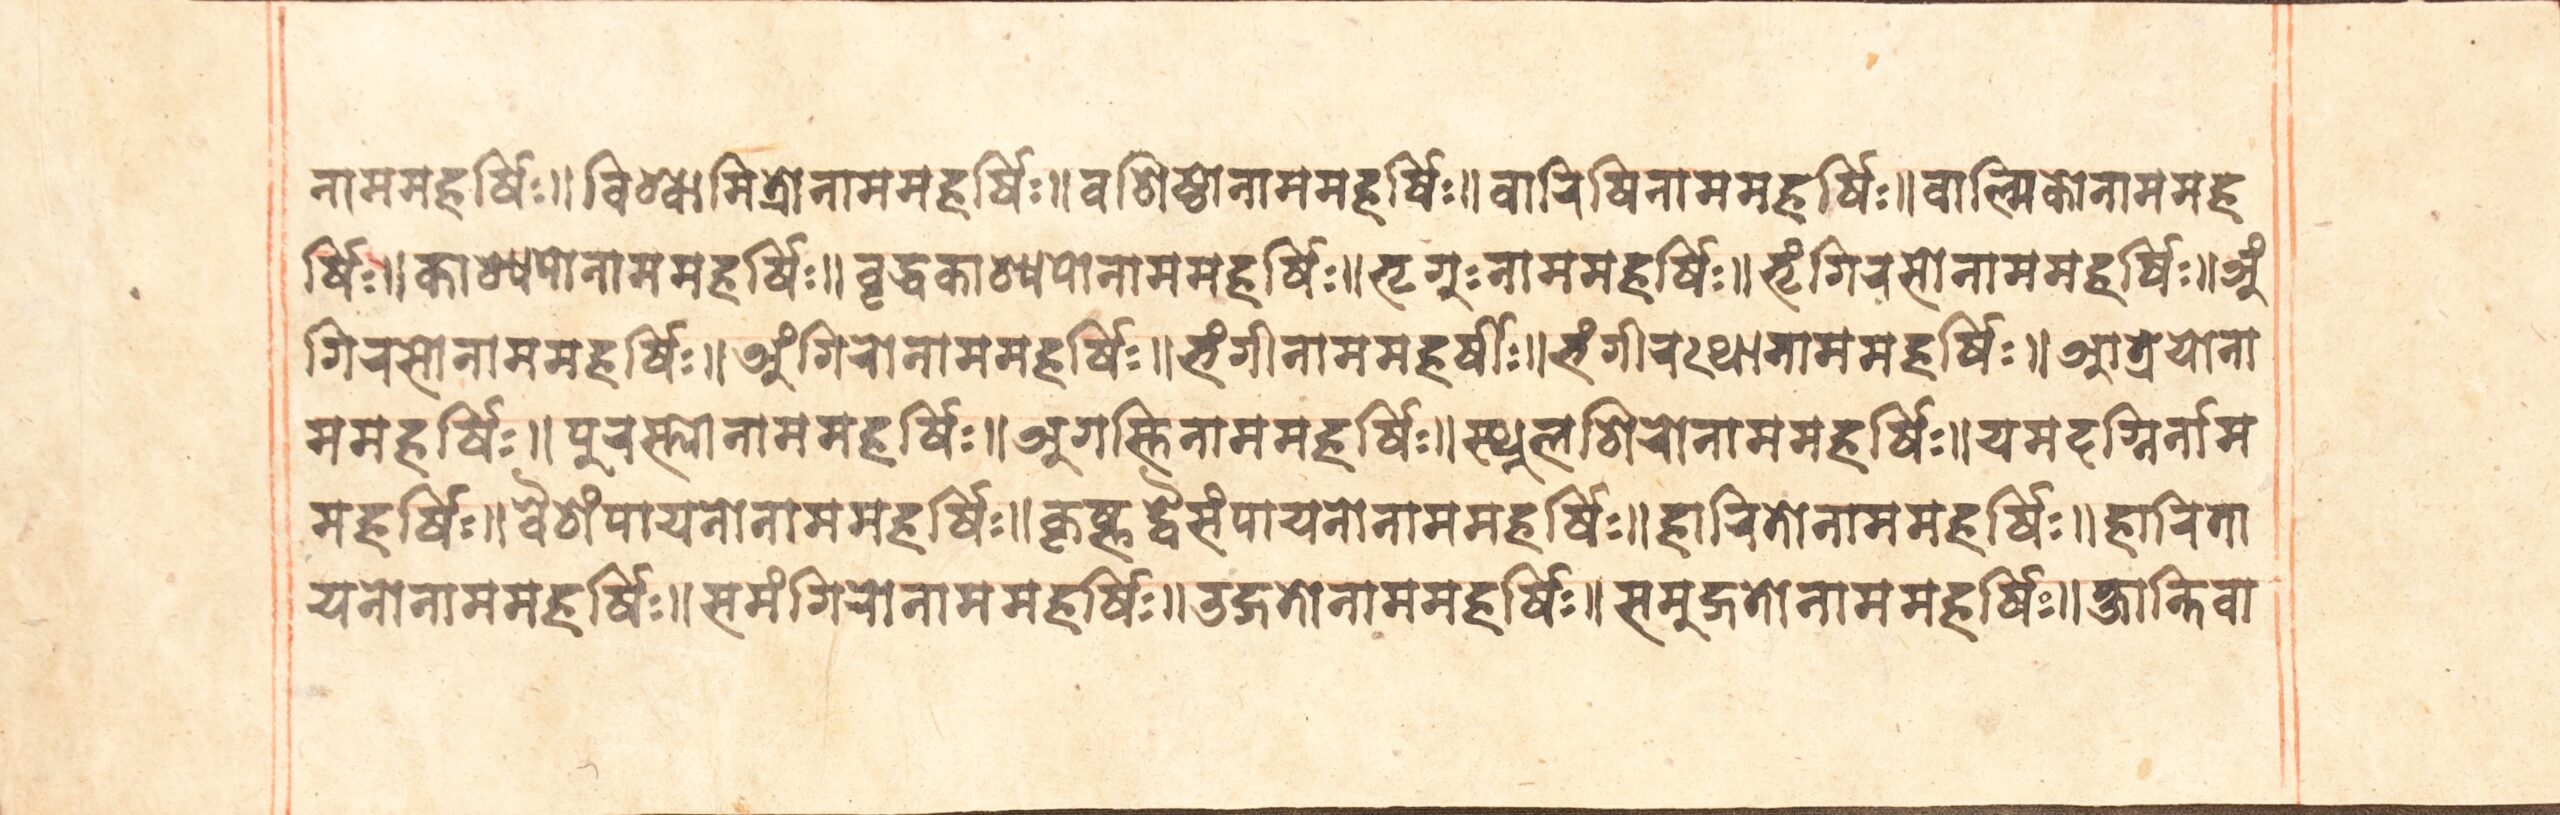 नाममहर्षिः॥विश्वामित्रोनाममहर्षिः॥वशिष्ठोनाममहर्षिः॥वारिषिनाममहर्षिः॥वाल्मिकोनाममह
र्षिः॥काश्यपोनाममहर्षिः॥वृद्धकाश्यपोनाममहर्षिः॥भृगुःनाममहर्षिः॥भृंगिरसोनाममहर्षिः॥अं
गिरसोनाममहर्षिः॥अंगिरोनाममहर्षिः॥भंगीनाममहर्षीः॥भंगीरथ्थानाममहर्षिः॥आत्रेयोना
ममहर्षिः॥पुरस्त्योनाममहर्षिः॥अगस्तिनाममहर्षिः॥स्थुलशिरोनाममहर्षिः॥यमदग्निर्नाम
महर्षिः॥वैशंपायनोनाममहर्षिः॥कृष्णद्वैसंपायनोनाममहर्षिः॥हारितोनाममहर्षिः॥हारिता
यनोनाममहर्षिः॥समंगिरोनाममहर्षिः॥उद्गतोनाममहर्षिः॥समुद्गतोनाममहर्षिः॥क्षान्तिवा